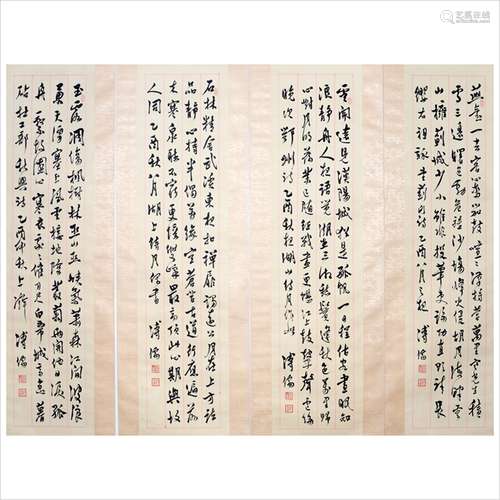 燕臺一去客心驚笳鼓喧喧漢將營萬里寒光生積
雪三邊曙色動危旌沙場烽火侵胡月海畔雲
山擁薊城少小雖非投筆吏論功直欲請長
纓 祖詠望薊門詩乙酉八月之望 溥儒
雲開遠見漢陽城猶是孤帆一日程估客晝眠知
浪靜舟人夜語覺潮生三湘愁鬢逢秋色萬里歸
心對月明舊業已隨征戰盡更堪江上鼓鼙聲盧綸
晚次鄂州詩乙酉秋夜湖山對月作此 溥儒
石林精舍武溪東夜扣禪扉謁遠公月在上方諸
品靜心持半偈萬緣空蒼苔古道行應遍落
木寒泉聽不窮更憶雙峰最高頂此心期與故
人同 乙酉秋八月湖上對月偶書 溥儒
玉露凋傷楓樹林巫山巫峽氣蕭森江間波浪
兼天湧塞上風雲接地陰叢菊兩開他日淚孤
舟一繫故園心寒衣處處催刀尺白帝城高急暮
砧 杜工部秋興詩乙酉仲秋上澣 溥儒